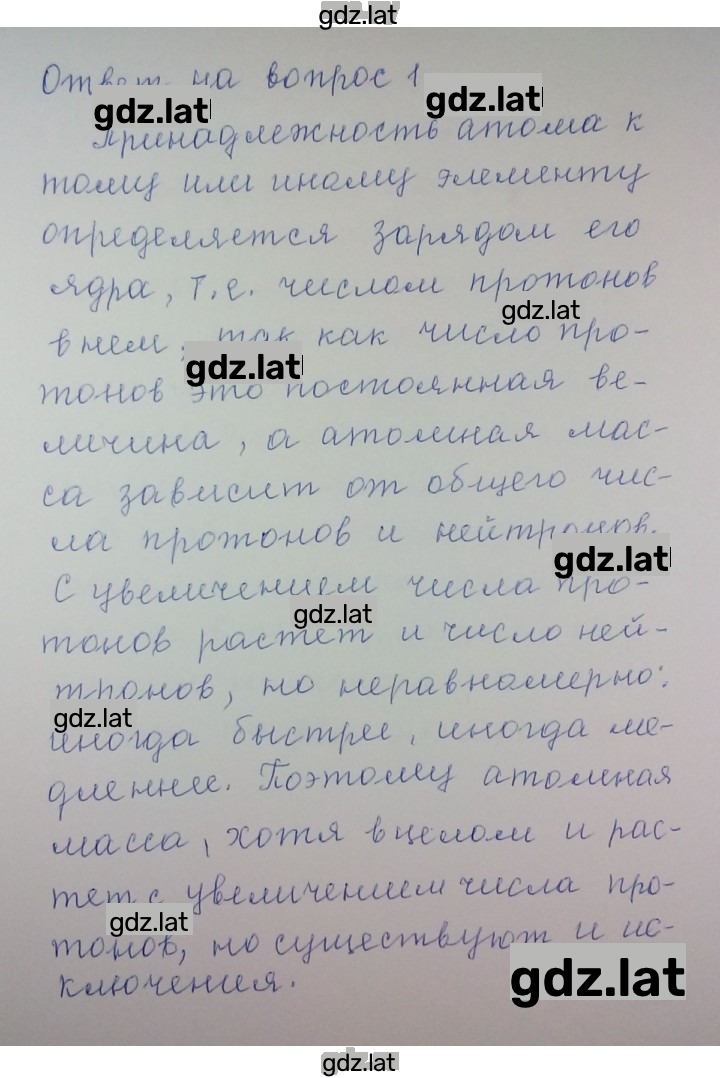 gdz.lat
Ответ на вопрос 1
gdz.lat
gdz.lat
Принадлежность атома к
тому или иному элементу
определяется зарядом его
ядра, т.е. числом протонов
gdz.lat
в нем, так как число про-
gdz.lat
тонов это постоянная ве-
личина, а атомная мас-
са зависит от общего чис-
ла протонов и нейтронов.
gdz.lat
С увеличением числа про-
gdz.lat
тонов растет и число ней-
тронов, но неравномерно:
gdz.lat
иногда быстрее, иногда ме-
дленнее. Поэтому атомная
масса, хотя в целом и рас-
тет с увеличением числа про-
gdz.lat
тонов, но существуют и ис-
ключения.
gdz.lat
gdz.lat